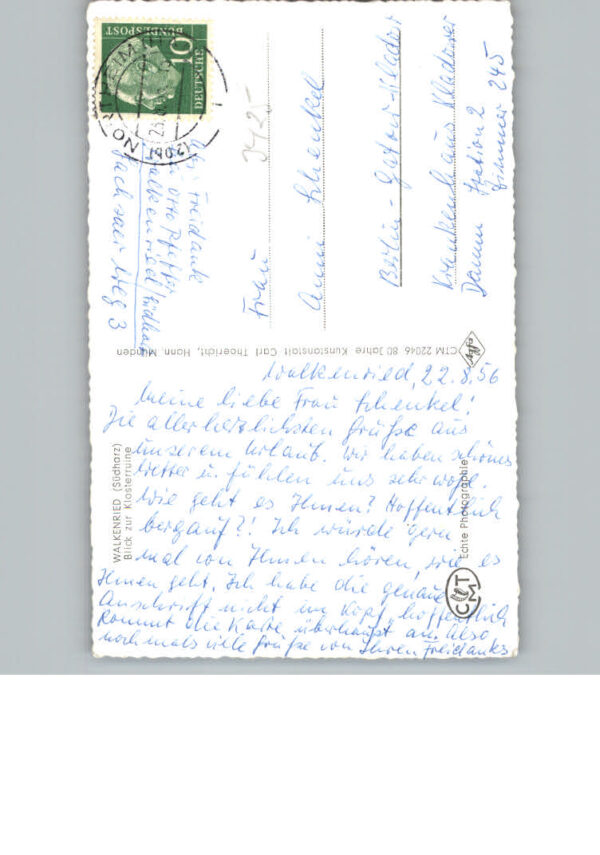 Walkenried, 22.8.56
Meine liebe Frau Schenkel!
Die allerherzlichsten Grüße aus
unserem Urlaub. Wir haben schönes
Wetter u. fühlen uns sehr wohl.
Wie geht es Ihnen? Hoffentlich
bergauf?! Ich würde gern
mal von Ihnen hören, wie es
Ihnen geht. Ich habe die genaue
Anschrift nicht im Kopf, hoffentlich
kommt die Karte überhaupt an. Also
nochmals viele Grüße von Ihren Freidanks
WALKENRIED (Südharz)
Blick zur Klosterruine
CTM 22046 80 Jahre Kunstanstalt Carl Thoericht, Hann. Münden
Echte Photographie
CTM
Abs. Freidank
Otto
Walkenried/Südharz
Sachsaer Weg 3
DEUTSCHE
BUNDESPOST
10
NORTHEIM
Frau
Anni Schenkel
Berlin-Gatow-Kladow
Krankenhaus Kladower
Damm Station 2
Zimmer 245